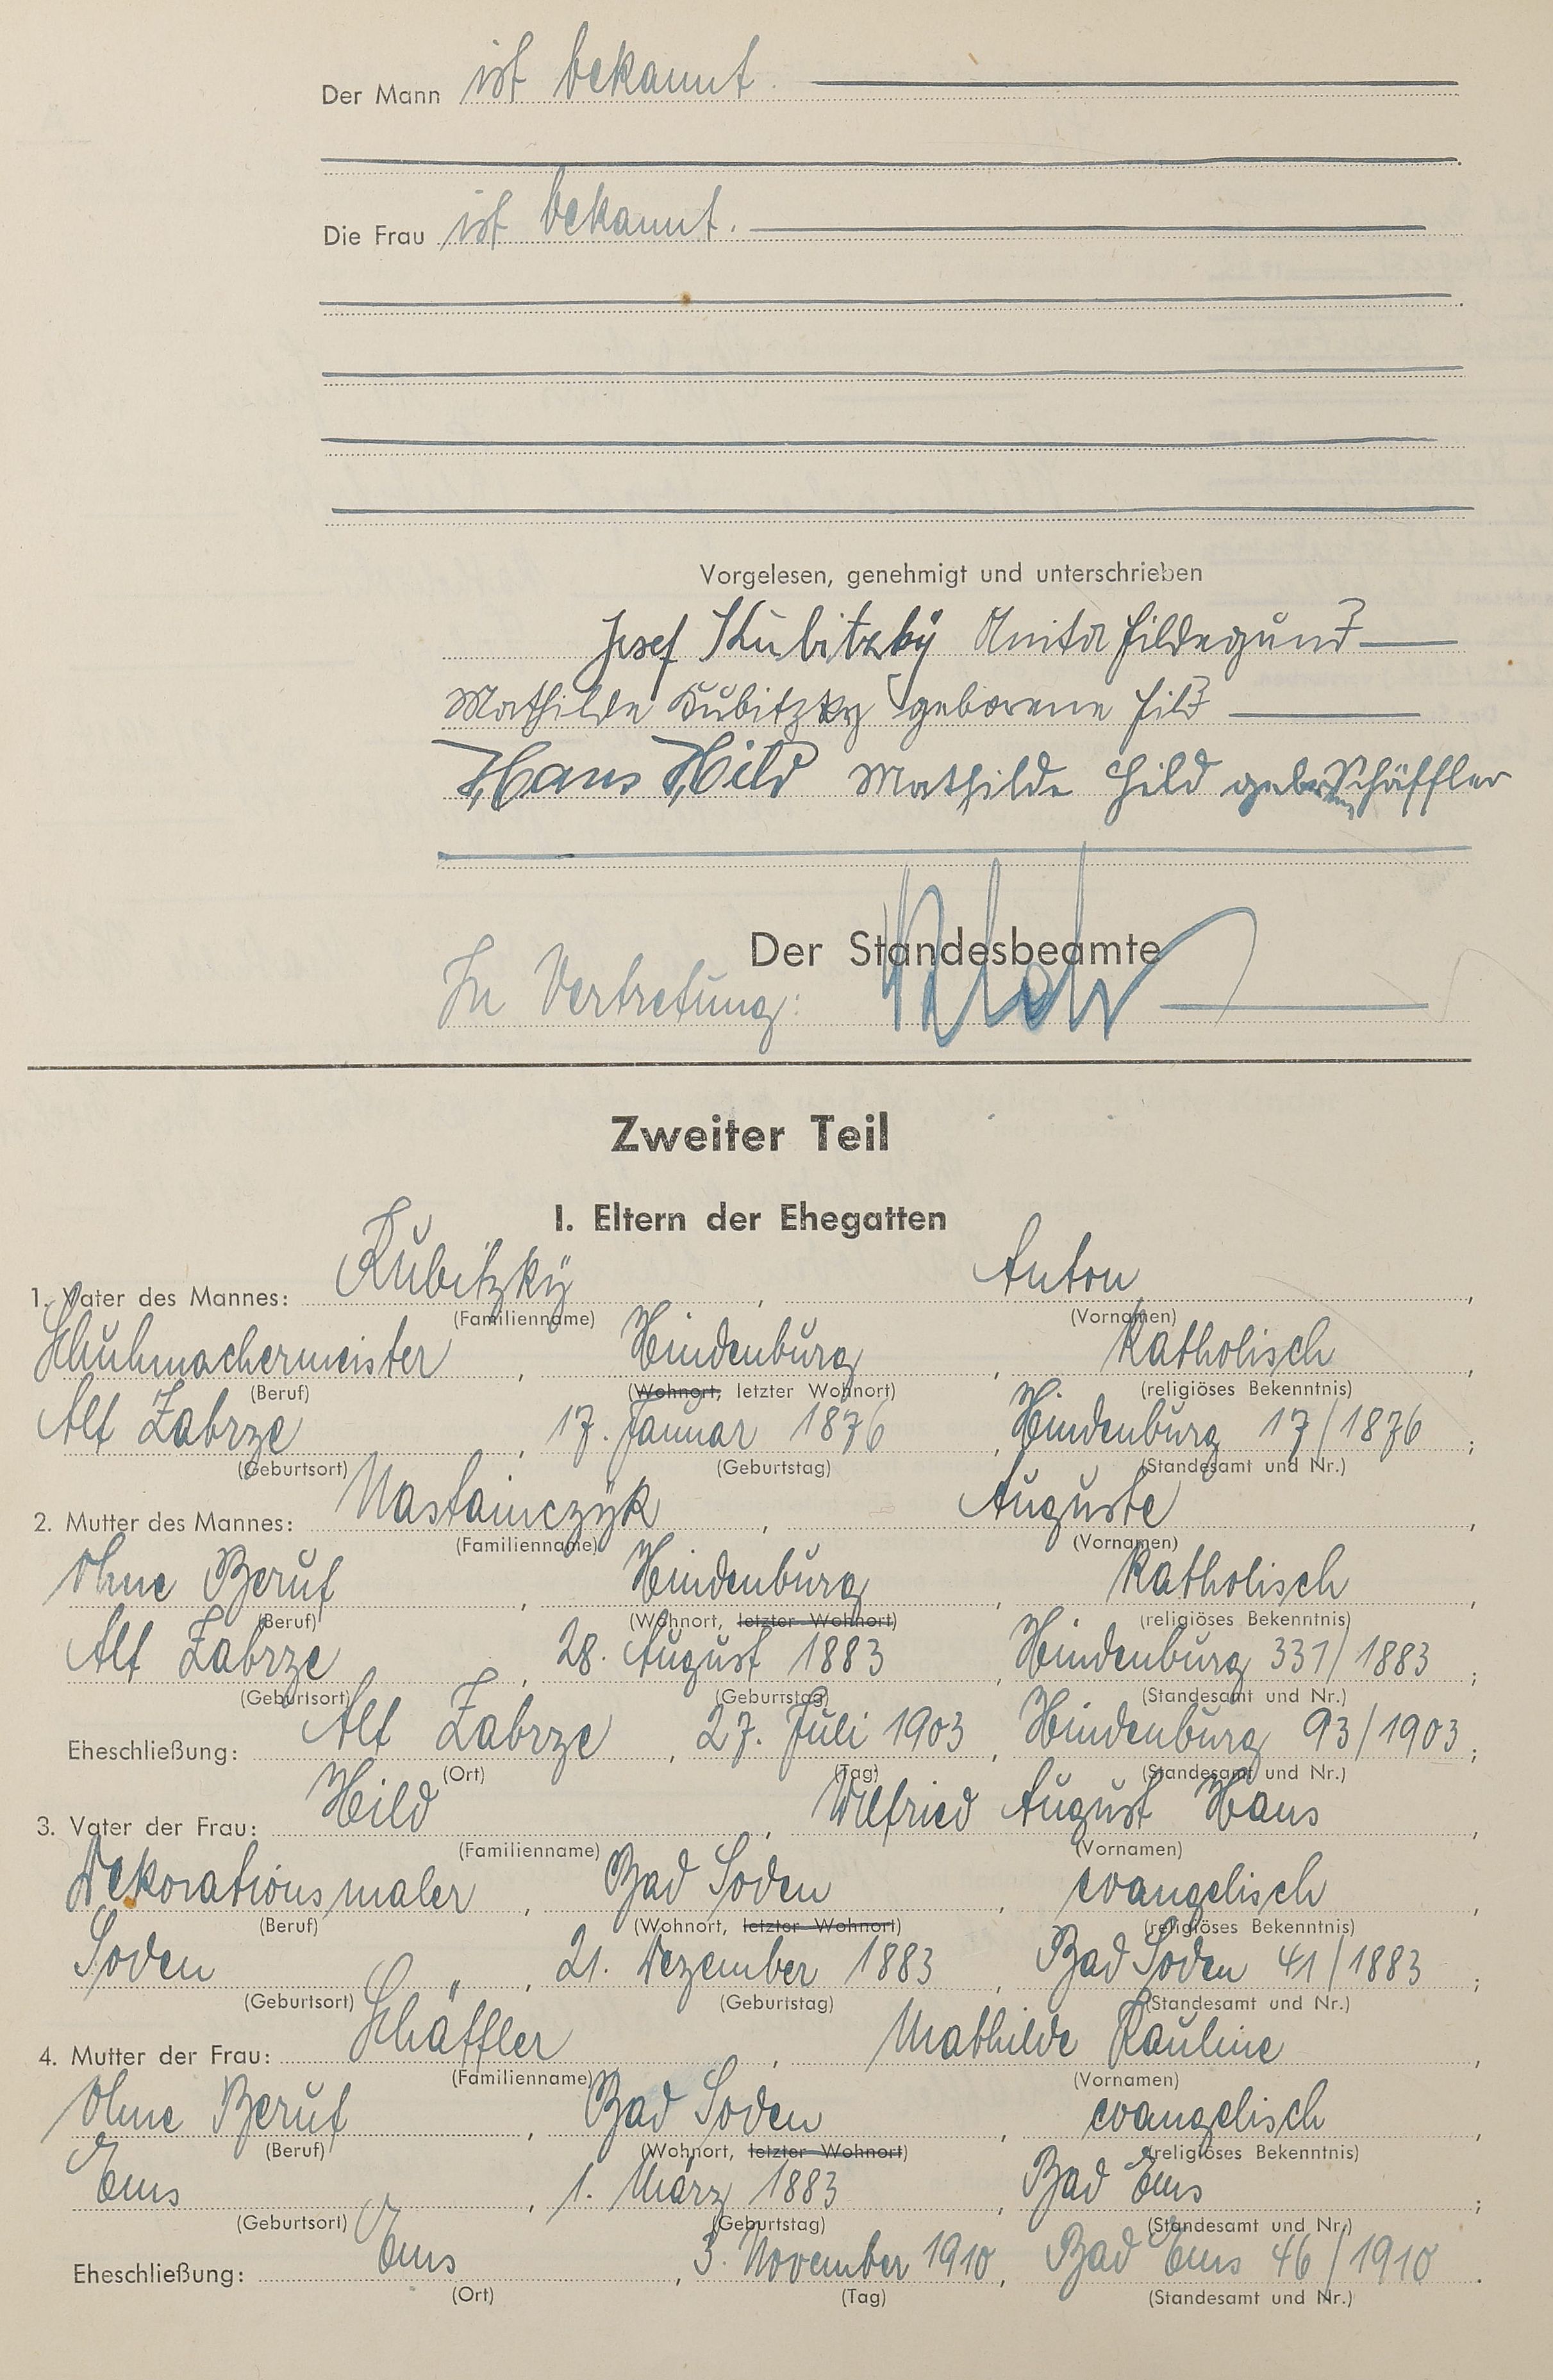 Der Mann ist bekannt.
Die Frau ist bekannt.
Vorgelesen, genehmigt und unterschrieben
Josef Kubitzky Anita Hildegund
Mathilde Kubitzky geborene Hild
Hans Hild Mathilde Hild geborene Schäffler
Der Standesbeamte
In Vertretung:
Zweiter Teil
I. Eltern der Ehegatten
1. Vater des Mannes: Kubitzky, Anton,
(Familienname) (Vornamen)
Schuhmachermeister, Hindenburg, katholisch,
(Beruf) (Wohnort, letzter Wohnort) (religiöses Bekenntnis)
Alt Zabrze, 17. Januar 1876, Hindenburg 17/1876;
(Geburtsort) (Geburtstag) (Standesamt und Nr.)
2. Mutter des Mannes: Nastainczyk, Auguste,
(Familienname) (Vornamen)
Ohne Beruf, Hindenburg, katholisch,
(Beruf) (Wohnort, letzter Wohnort) (religiöses Bekenntnis)
Alt Zabrze, 28. August 1883, Hindenburg 331/1883;
(Geburtsort) (Geburtstag) (Standesamt und Nr.)
Eheschließung: Alt Zabrze, 27. Juli 1903, Hindenburg 93/1903;
(Ort) (Tag) (Standesamt und Nr.)
3. Vater der Frau: Hild, Wilfried August Hans,
(Familienname) (Vornamen)
Dekorationsmaler, Bad Soden, evangelisch,
(Beruf) (Wohnort, letzter Wohnort) (religiöses Bekenntnis)
Soden ", 21. Dezember 1883, Bad Soden 41/1883;
(Geburtsort) (Geburtstag) (Standesamt und Nr.)
4. Mutter der Frau: Schäffler, Mathilde Pauline,
(Familienname) (Vornamen)
Ohne Beruf, Bad Soden, evangelisch,
(Beruf) (Wohnort, letzter Wohnort) (religiöses Bekenntnis)
Ems, 1. März 1883, Bad Ems;
(Geburtsort) (Geburtstag) (Standesamt und Nr.)
Eheschließung: Ems, 3. November 1910, Bad Ems 46/1910.
(Ort) (Tag) (Standesamt und Nr.)